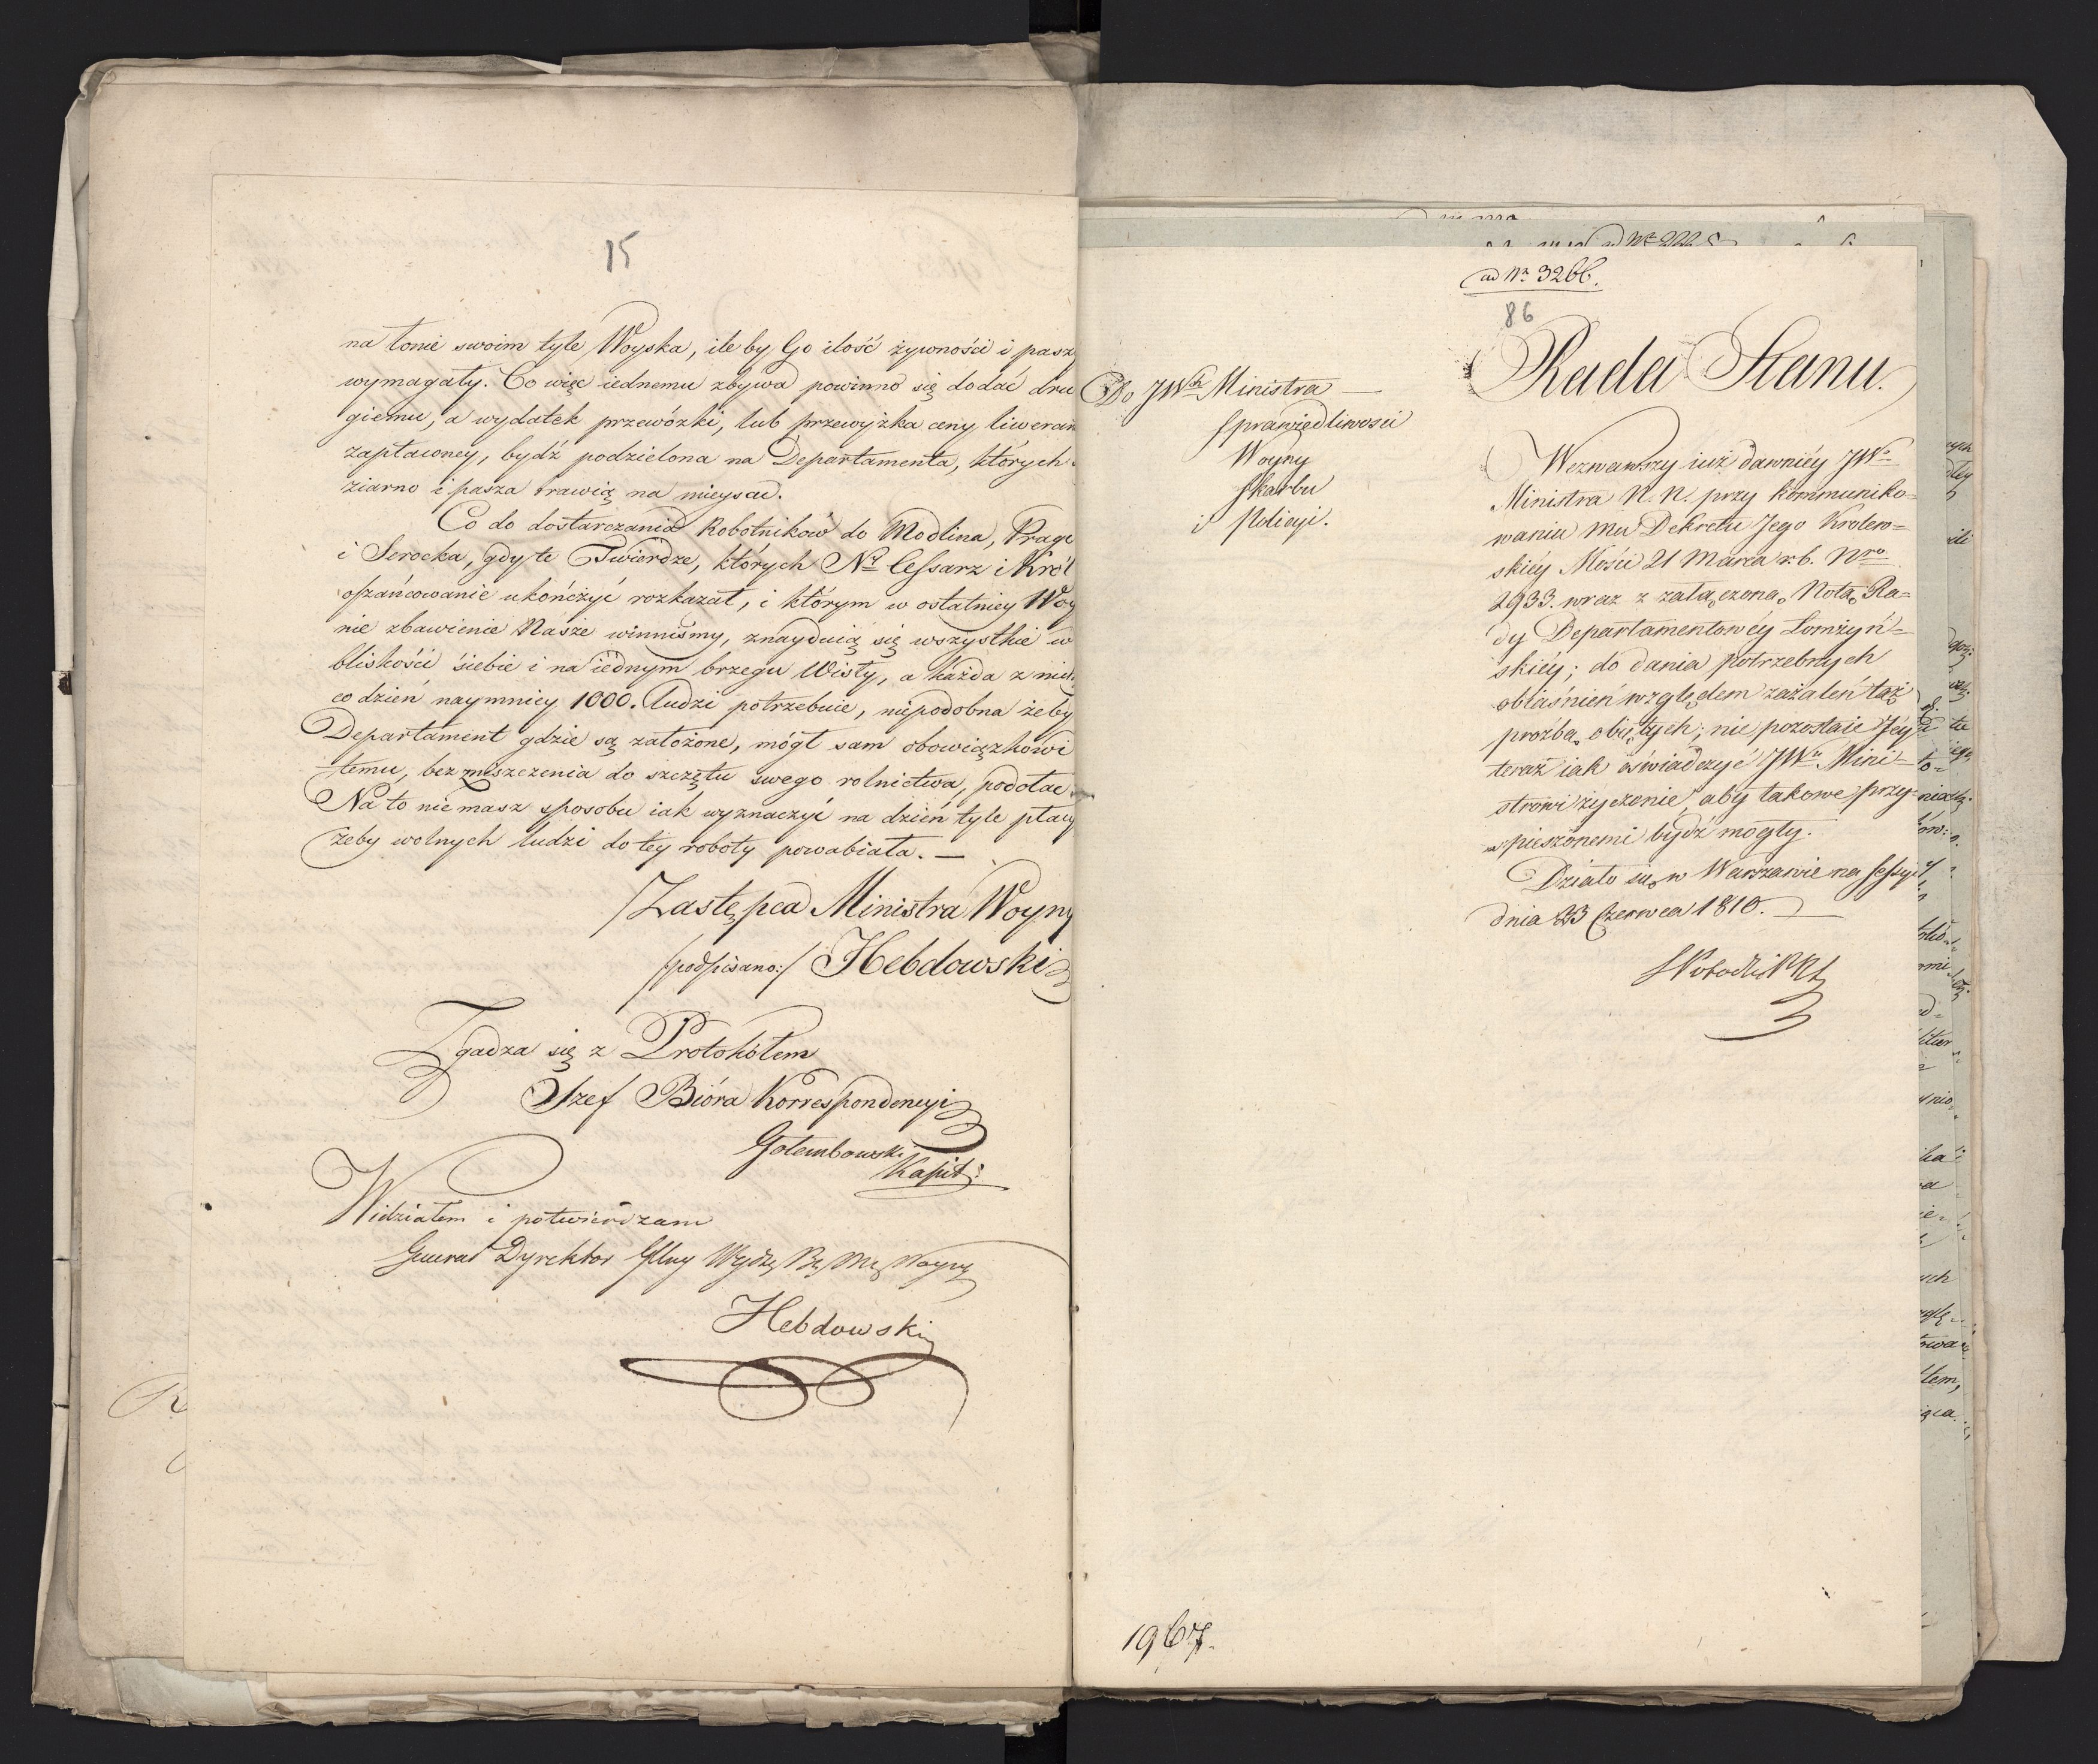 15
na łonie swoim tyle Woyska, ile by Go ilość żywności i pasz
wymagały. Co więc iednemu zbywa powinno się dodać dru
giemu, a wydatek przewózki, lub przewyżka ceny liweran
zapłaconey, bydź podzielona na Departamenta, których
ziarno i pasza trawią na mieyscu.
Co do dostarczania Robotników do Modlina, Pragi
i Serocka, gdy te Twierdze, których Nr Cessarz i Król
opzańcowanie ukończyć rozkazał, i którym w ostatniey Woy
nie zbawienie Nasze winniśmy, znayduią się wszystkie w
bliskości siebie i na iednym brzegu Wisły, a każda z nich
co dzień naymniey 1000. ludzi potrzebuie, niepodobna żeby
Departament gdzie są założone, mógł sam obowiązkowi
temu, bez zniszczenia do szczętu swego rolnictwa, podołać
Na to nie masz sposobu iak wyznaczyć na dzień tyle płacy
żeby wolnych ludzi do tey roboty powabiała. —
Zastępca Ministra Woyny
/podpisano:/ Hebdowski
Zgadza się z Protokółem
Szef Bióra Korrespondencyi
Gołembowski
Kapit:
Widziałem i potwierdzam
Generał Dyrektor
Hebdowski
ad Nr 3266.
86
Rada Stanu.
Do JWo Ministra —
Sprawiedliwości
Woyny
Skarbu
i Policyi.
Wezwawszy iuż dawniéy JWo
Ministra N. N. przy kommuniko=
waniu mu Dekretu Jego Królew=
skiéy Mości 21 Marca r. b. Nro
2933. wraz z załączoną Notą Ra=
dy Departamentowéy Łomżyń=
skiéy; do dania potrzebnych
obiaśnień względem zażaleń taż
prośbą obiętych; nie pozostaie Jéy
teraz iak oświadczyć JWu Mini=
strowi życzenie, aby takowe przy=
spieszonemi bydź mogły.
Działo się w Warszawie na Sessyi
dnia 23 Czerwca 1810.
1967.